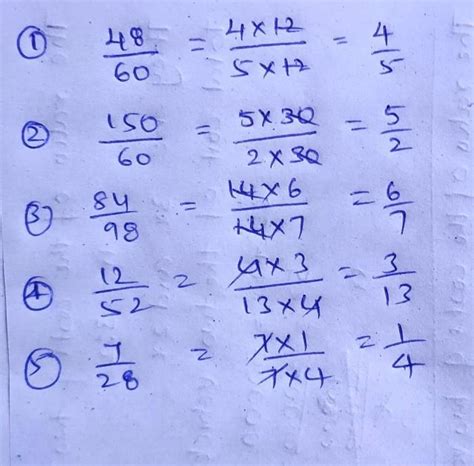 ① 48/60 = 4×12/5×12 = 4/5
② 150/60 = 5×30/2×30 = 5/2
③ 84/98 = 14×6/14×7 = 6/7
④ 12/52 = 4×3/13×4 = 3/13
⑤ 7/28 = 7×1/7×4 = 1/4